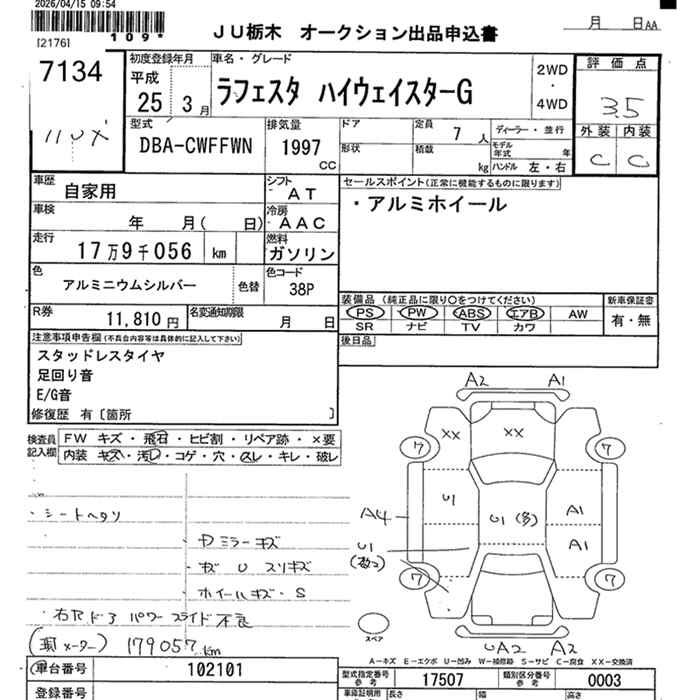 2026/04/15 09:54
[2176]
109*
JU栃木 オークション出品申込書
月 日AA
7134
初度登録年月
平成
25 3月
車名・グレード
ラフェスタ ハイウェイスターG
2WD
・
4WD
評価点
3.5
外装 内装
C C
型式
DBA-CWFFWN
排気量
1997
CC
ドア
形状
定員 7 人
積載 kg
ディーラー・並行
モデル年式 年
ハンドル 左・右
車歴
自家用
シフト
AT
車検
年 月( 日)
冷房
AAC
走行
17万9千056 km
燃料
ガソリン
色
アルミニウムシルバー
色替
色コード
38P
R券
11,810 円
名変通知期限
月 日
セールスポイント(正常に機能するものに限ります)
・アルミホイール
装備品 (純正品に限り○をつけてください)
PS PW ABS エアB AW
SR ナビ TV カワ
新車保証書
有・無
後日品
注意事項申告欄(不具合内容等は具体的に記入して下さい)
スタッドレスタイヤ
足回り音
E/G音
修復歴 有〔箇所 〕
検査員記入欄
FW キズ・飛石・ヒビ割・リペア跡・×要
内装 キズ・汚レ・コゲ・穴・スレ・キレ・破レ
・シートヘタリ
・ドミラーキズ
・キズ U スリキズ
ホイールキズ・S
・右Rドア パワースライド不良
(現メーター) 179057km
A2 A1
XX XX
7 7
U1 U1(多) A1
A4 A1
U1
(数コ)
7 7
スペア
UA2 A2
A-キズ E-エクボ U-凹み W-補修跡 S-サビ C-腐食 XX-交換済
車台番号
102101
登録番号
型式指定番号
参考
17507
類別区分番号
参考
0003
長さ
幅
高さ